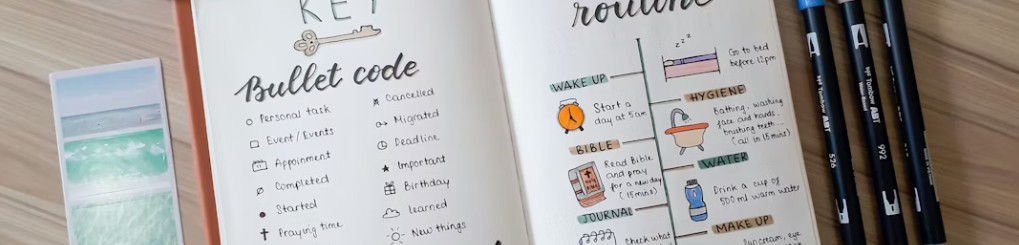 KEY
Bullet code
Personal task
Event / Events
Appoinment
Completed
Started
Praying time
Cancelled
Migrated
Deadline
Important
Birthday
Learned
New things
routine
zzz
Go to bed
before 12pm
WAKE UP
Start a
day at 5am
HYGIENE
Bathing, washing
face and hands,
brushing teeth...
(all in 15 mins)
BIBLE
Read Bible
and pray
for a new day
(15mins)
WATER
Drink a cup of
500ml warm water
JOURNAL
Check what
MAKE UP
eye
Tombow ABT
526
Tombow ABT
992